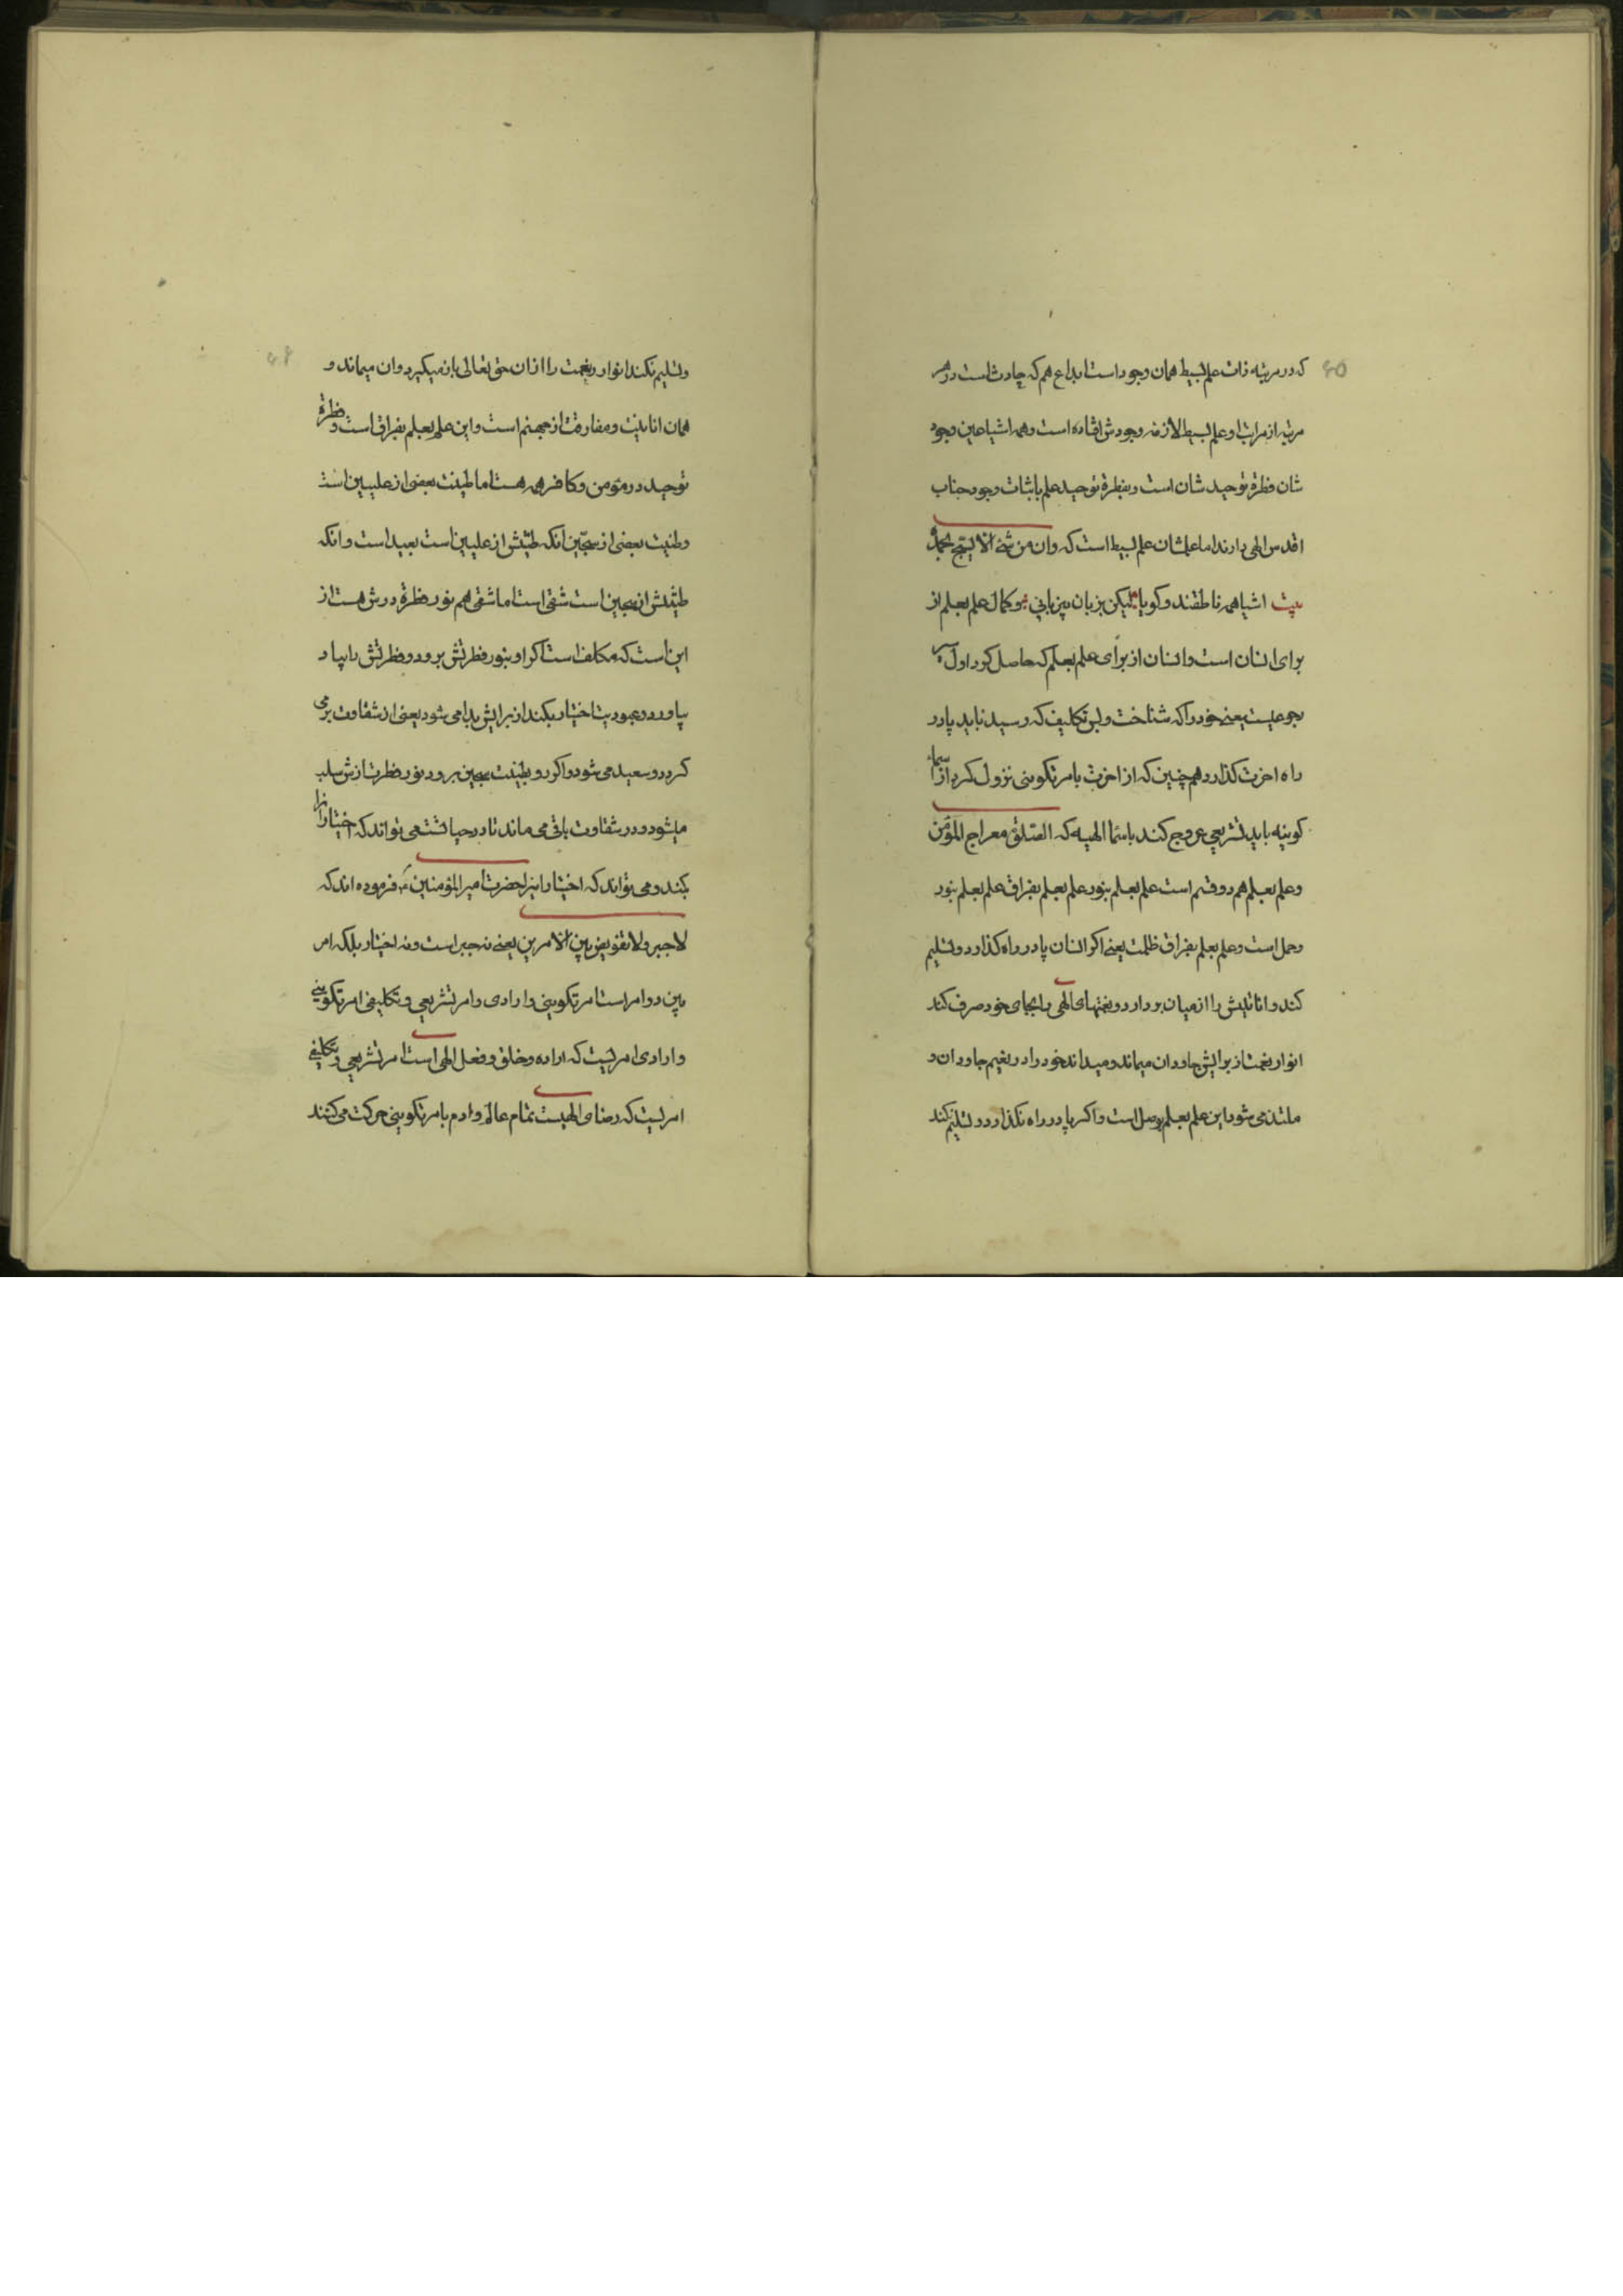 که در مرتبه ذات علم بسیط همان وجود است ابداع هم که حادث است در هر
مرتبه از مراتب او علم بسیط لازمه وجودش افتاده است و همه اشیا عین وجود
شان فطرة توحید شان است و بفطرة توحید علم باثبات وجود جناب
اقدس الهی دارند اما علمشان علم بسیط است که وان من شئ الا یسبح بحمده
بیت اشیا همه ناطقند و کویا لیکن بزبان بیزبانی و کمال علم بعلم از
برای انسان است و انسان از برای علم بعلم که حاصل کرد اول
رجوعیست یعنی خود را که شناخت و بسن تکلیف که رسید باید پا در
راه اخرت کذارد و هم چنین که از اخرت بامر تکوینی نزول کرد از اسماء
کونیه باید تشریعی عروج کند باسما الهیه که الصلوة معراج المؤمن
و علم بعلم هم دو قسم است علم بعلم بنور علم بعلم بفراق علم بعلم بنور
وصل است و علم بعلم بفراق ظلمت یعنی اکر انسان پا در راه کذارد و تسلیم
کند و انانیتش را از میان بردارد و نعمتهای الهی را بجای خود صرف کند
انوار نعمت از برایش جاودان میماند و میداند خود را در نعیم جاودان و
ملتذ می شود این علم بعلم وصل است و اکر پا در راه نکذارد و تسلیم نکند
و تسلیم نکند انوار و نعمت را از ان حق تعالی باز میکیرد و ان میماند و
همان انانیت و مفارقت از جهنم است و این علم بعلم بفراق است و فطرة
توحید در مؤمن و کافر همه هست اما طینت بعضی از علیین است
و طینت بعضی از سجین انکه طینتش از علیین است سعید است و انکه
طینتش از سجین است شقی است اما شقی هم نور فطرة درش هست از
این است که مکلف است اکر او بنور فطرتش برود و فطرتش را بیاد
بیاورد و عبودیت اختیار بکند از برایش بدا می شود یعنی از شقاوت بر می
کردد و سعید می شود و اکر رو بطینت سجین برود نور فطرت ازش سلب
میشود و در شقاوت باقی می ماند تا در حیاتست می تواند که اختیار انرا
بکند و می تواند که اختیار اینرا حضرت امیر المؤمنین ع فرموده اند که
لا جبر و لا تفویض بین الامرین یعنی نه جبر است و نه اختیار بلکه امر
بین دو امر است امر تکوینی و ارادی و امر تشریعی و تکلیفی امر تکوینی
و ارادی امریست که اراده و خلق و فعل الهی است امر تشریعی و تکلیفی
امریست که رضای الهیست تمام عالم و ادم بامر تکوینی حرکت می کنند